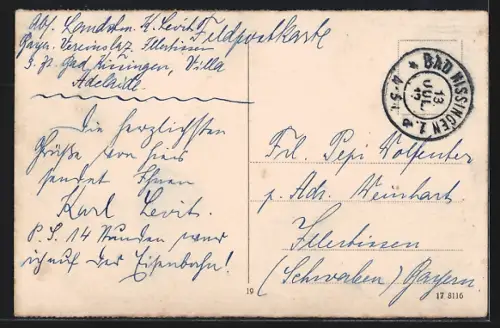 Abs. Landstm. K. Levit
Bayer. Vereinslaz. Illertissen
z. Zt. Bad Kissingen, Villa
Adelaide.
Feldpostkarte
Die herzlichsten
Grüße von hier
sendet Ihnen
Karl Levit.
P.S. 14 Stunden war
ich auf der Eisenbahn!
BAD KISSINGEN 1.
13
JUL
Frl. Pepi Wolfenter
p. Adr. Weinhart
Illertissen
(Schwaben) Bayern.
19
17 8116